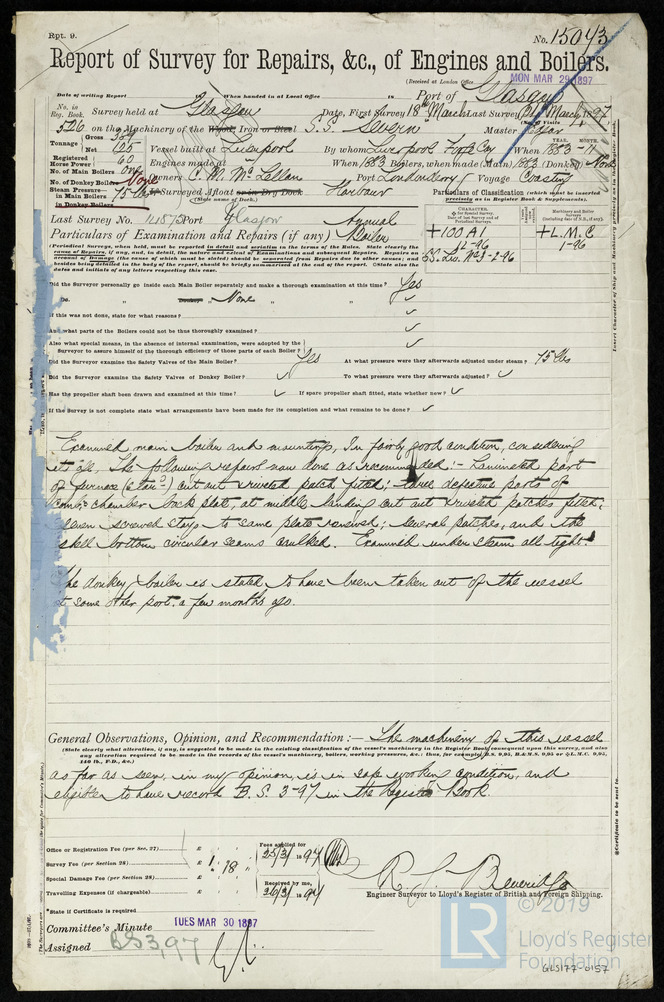 Rpt. 9.
No. 15043
Report of Survey for Repairs, &c., of Engines and Boilers.
(Received at London Office MON MAR 29 1897
Date of writing Report When handed in at Local Office 18 Port of Glasgow
No. in Reg. Book. Survey held at Glasgow Date, First Survey 18th March Last Survey March 1897
526 on the Machinery of the Wood, Iron or Steel S.S. Severn Master
Tonnage Gross Net 165 Vessel built at Liverpool By whom Liverpool When 1883
Registered Horse Power 60 Engines made at When 1883 Boilers, when made (Main) 1883 (Donkey) None
No. of Main Boilers one Owners C. M. McLellan Port Londonderry Voyage Coasting
No. of Donkey Boilers None
Steam Pressure in Main Boilers 75 lbs If Surveyed Afloat or in Dry Dock Harbour
in Donkey Boilers (State name of Dock.)
Particulars of Classification (which must be inserted precisely as in Register Book & Supplements).
Last Survey No. 14875 Port Glasgow Annual
Particulars of Examination and Repairs (if any) Boiler
CHARACTER.
+100A1
12-96
YEAR. MONTH.
Machinery and Boiler Surveys
+L.M.C
1-96
(Periodical Surveys, when held, must be reported in detail and seriatim in the terms of the Rules. State clearly the
cause of Repairs, if any, and, in detail, the nature and extent of Examinations and subsequent Repairs. Repairs on
account of Damage (the cause of which must be stated) should be separated from Repairs due to other causes; and
besides being detailed in the body of the report, should be briefly summarised at the end of the report. State also the
dates and initials of any letters respecting this case.
Did the Surveyor personally go inside each Main Boiler separately and make a thorough examination at this time? Yes
Do. " Donkey " None " "
If this was not done, state for what reasons?
And what parts of the Boilers could not be thus thoroughly examined?
Also what special means, in the absence of internal examination, were adopted by the
Surveyor to assure himself of the thorough efficiency of those parts of each Boiler?
Did the Surveyor examine the Safety Valves of the Main Boiler? Yes At what pressure were they afterwards adjusted under steam? 75 lbs
Did the Surveyor examine the Safety Valves of Donkey Boiler? To what pressure were they afterwards adjusted?
Has the propeller shaft been drawn and examined at this time? If spare propeller shaft fitted, state whether new?
If the Survey is not complete state what arrangements have been made for its completion and what remains to be done?
Examined main boiler and mountings, In fairly good condition, considering
its age. The following repairs now done as recommended:- Laminated part
of furnace (star'd) cut out & riveted patch fitted; three defective parts of
comb: chamber back plate, at middle landing cut out & riveted patches fitted;
seven screwed stays to same plate renewed; several patches, and the
shell bottom circular seams caulked. Examined under steam all tight.
The donkey boiler is stated to have been taken out of the vessel
at some other port a few months ago.
General Observations, Opinion, and Recommendation:— The machinery of this vessel
(State clearly what alteration, if any, is suggested to be made in the existing classification of the vessel's machinery in the Register Book consequent upon this survey, and also
any alteration required to be made in the records of the vessel's machinery, boilers, working pressures, &c.; thus, for example, B.S. 9,95, B.&M.S. 0,95 or L.M.C. 0,95,
140 lb., F.D., &c.)
as far as seen, in my opinion, is in safe working condition, and
eligible to have record B.S. 3-97 in the Register Book.
Office or Registration Fee (per Sec. 27) £
Survey Fee (per Section 28) £ 1 . 18
Special Damage Fee (per Section 28) £
Travelling Expenses (if chargeable) £
Fees applied for
25/3/1897
Received by me,
26/3/1897
R. J. Beveridge
Engineer Surveyor to Lloyd's Register of British and Foreign Shipping.
*State if Certificate is required
Committee's Minute TUES MAR 30 1897
Assigned BS 3,97
© 2019
LR
Lloyd's Register
Foundation
GLS177-0157